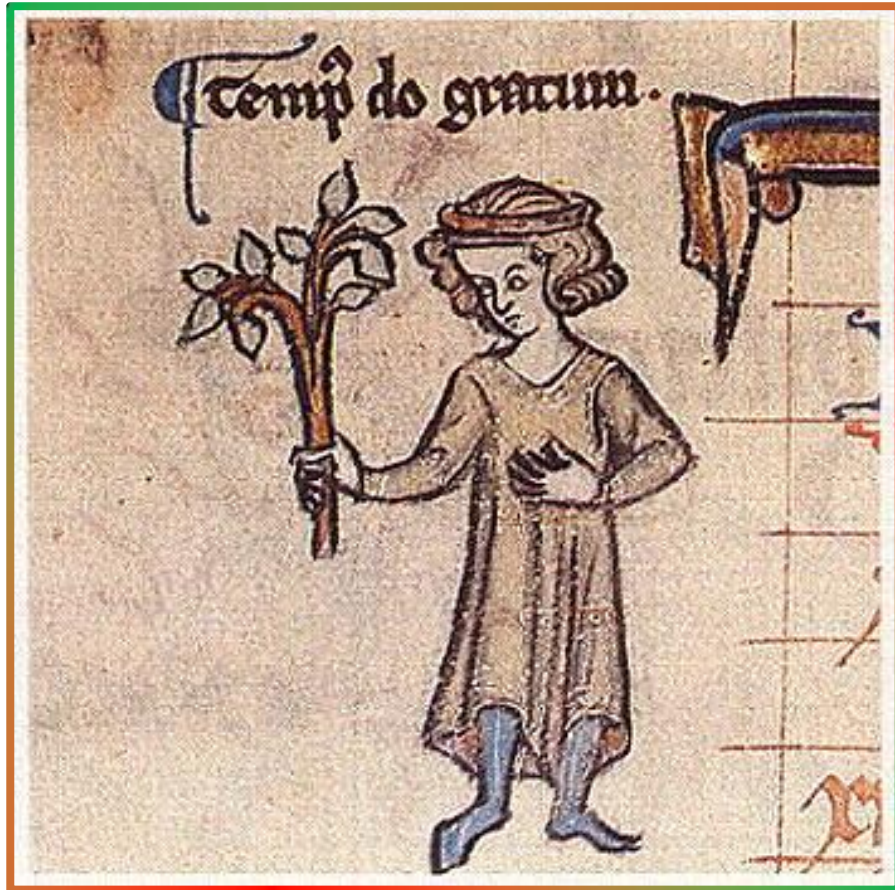 Temꝑᷣ do gratum.